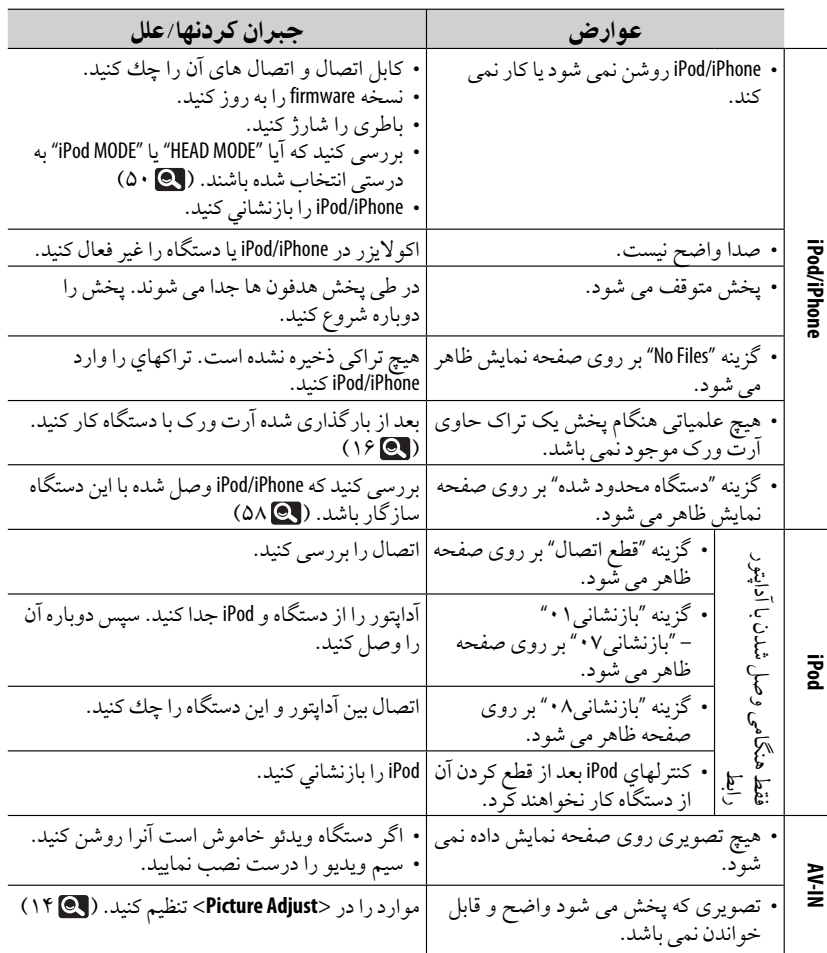 عوارض
جبران کردنها/علل
iPod/iPhone
• iPod/iPhone روشن نمی شود یا کار نمی
کند.
• کابل اتصال و اتصال های آن را چك کنید.
• نسخه firmware را به روز کنید.
• باطری را شارژ کنید.
• بررسی کنید که آیا "HEAD MODE" یا "iPod MODE" به
درستی انتخاب شده باشند. (۵۰)
• iPod/iPhone را بازنشاني کنید.
• صدا واضح نیست.
اکولایزر در iPod/iPhone یا دستگاه را غیر فعال کنید.
• پخش متوقف می شود.
در طی پخش هدفون ها جدا می شوند. پخش را
دوباره شروع کنید.
• گزینه "No Files" بر روی صفحه نمایش ظاهر
می شود.
هیچ تراکی ذخیره نشده است. تراکهاي را وارد
iPod/iPhone کنید.
• هیچ علمیاتی هنگام پخش یک تراک حاوی
آرت ورک موجود نمی باشد.
بعد از بارگذاری شده آرت ورک با دستگاه کار کنید.
(۱۶)
• گزینه "دستگاه محدود شده" بر روی صفحه
نمایش ظاهر می شود.
بررسی کنید که iPod/iPhone وصل شده با این دستگاه
سازگار باشد. (۵۸)
iPod
فقط هنگامی وصل شدن با آداپتور
رابط
• گزینه "قطع اتصال" بر روی صفحه
ظاهر می شود.
اتصال را بررسی کنید.
• گزینه "بازنشانی۰۱"
– "بازنشانی۰۷" بر روی صفحه
ظاهر می شود.
آداپتور را از دستگاه و iPod جدا کنید. سپس دوباره آن
را وصل کنید.
• گزینه "بازنشانی۰۸" بر روی
صفحه ظاهر می شود.
اتصال بین آداپتور و این دستگاه را چك کنید.
• کنترلهاي iPod بعد از قطع کردن آن
از دستگاه کار نخواهند کرد.
iPod را بازنشاني کنید.
AV-IN
• هیچ تصویری روی صفحه نمایش داده نمی
شود.
• اگر دستگاه ویدئو خاموش است آنرا روشن کنید.
• سیم ویدیو را درست نصب نمایید.
• تصویری که پخش می شود واضح و قابل
خواندن نمی باشد.
موارد را در <Picture Adjust> تنظیم کنید. (۱۴)